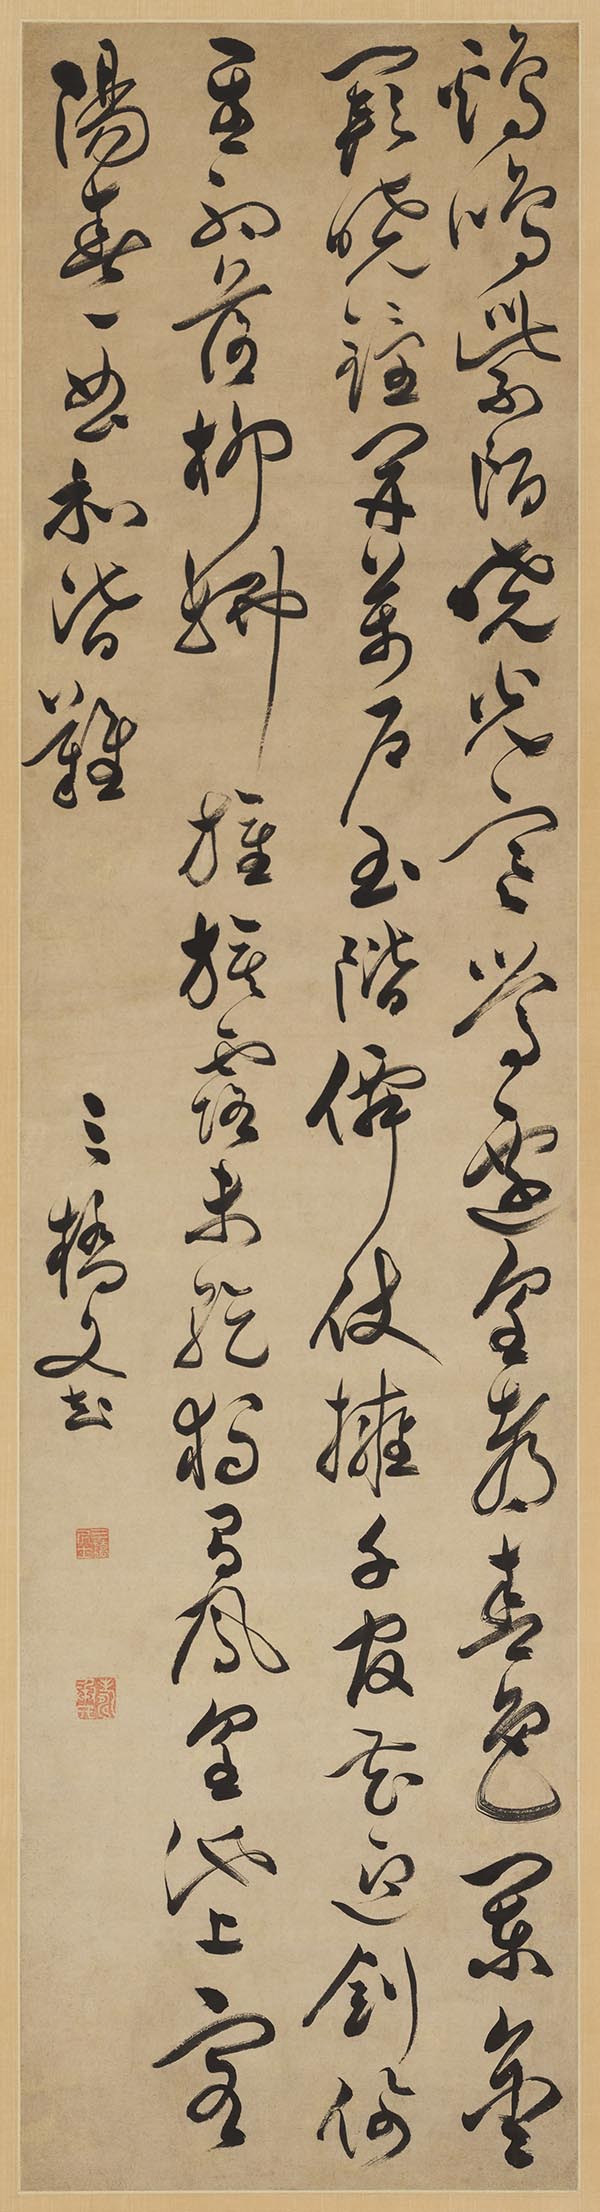 鷄鳴紫陌曉光寒鶯遷皇都春色闌金
闕曉鐘開萬戶玉階僊仗擁千官花迎劍佩
星初落柳拂旌旗露未乾獨有鳳皇池上客
陽春一曲和皆難
三橋文彭